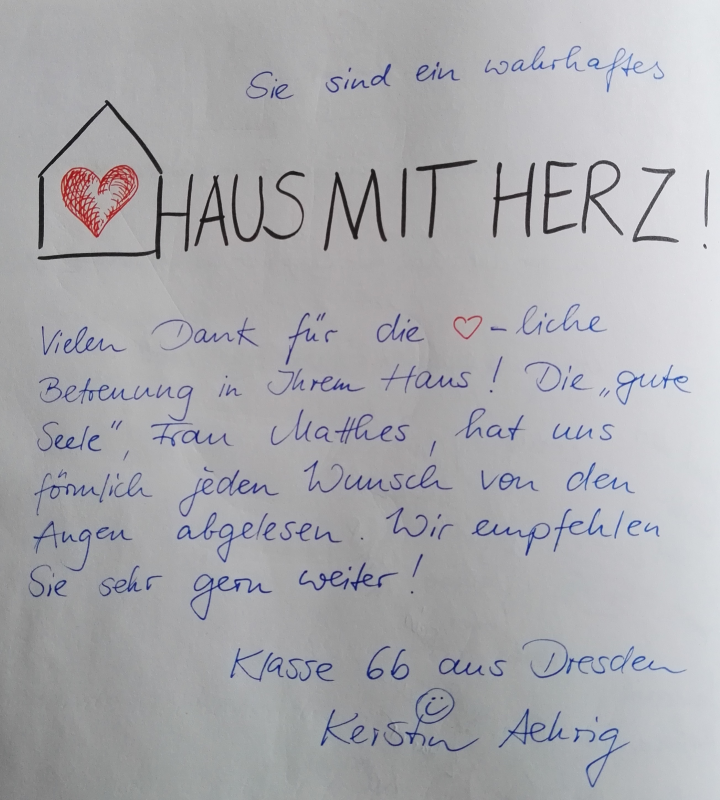 Sie sind ein wahrhaftes
HAUS MIT HERZ!
Vielen Dank für die ♡-liche
Betreuung in Ihrem Haus! Die „gute
Seele“, Frau Matthes, hat uns
förmlich jeden Wunsch von den
Augen abgelesen. Wir empfehlen
Sie sehr gern weiter!
Klasse 6b aus Dresden
Kerstin Aehrig